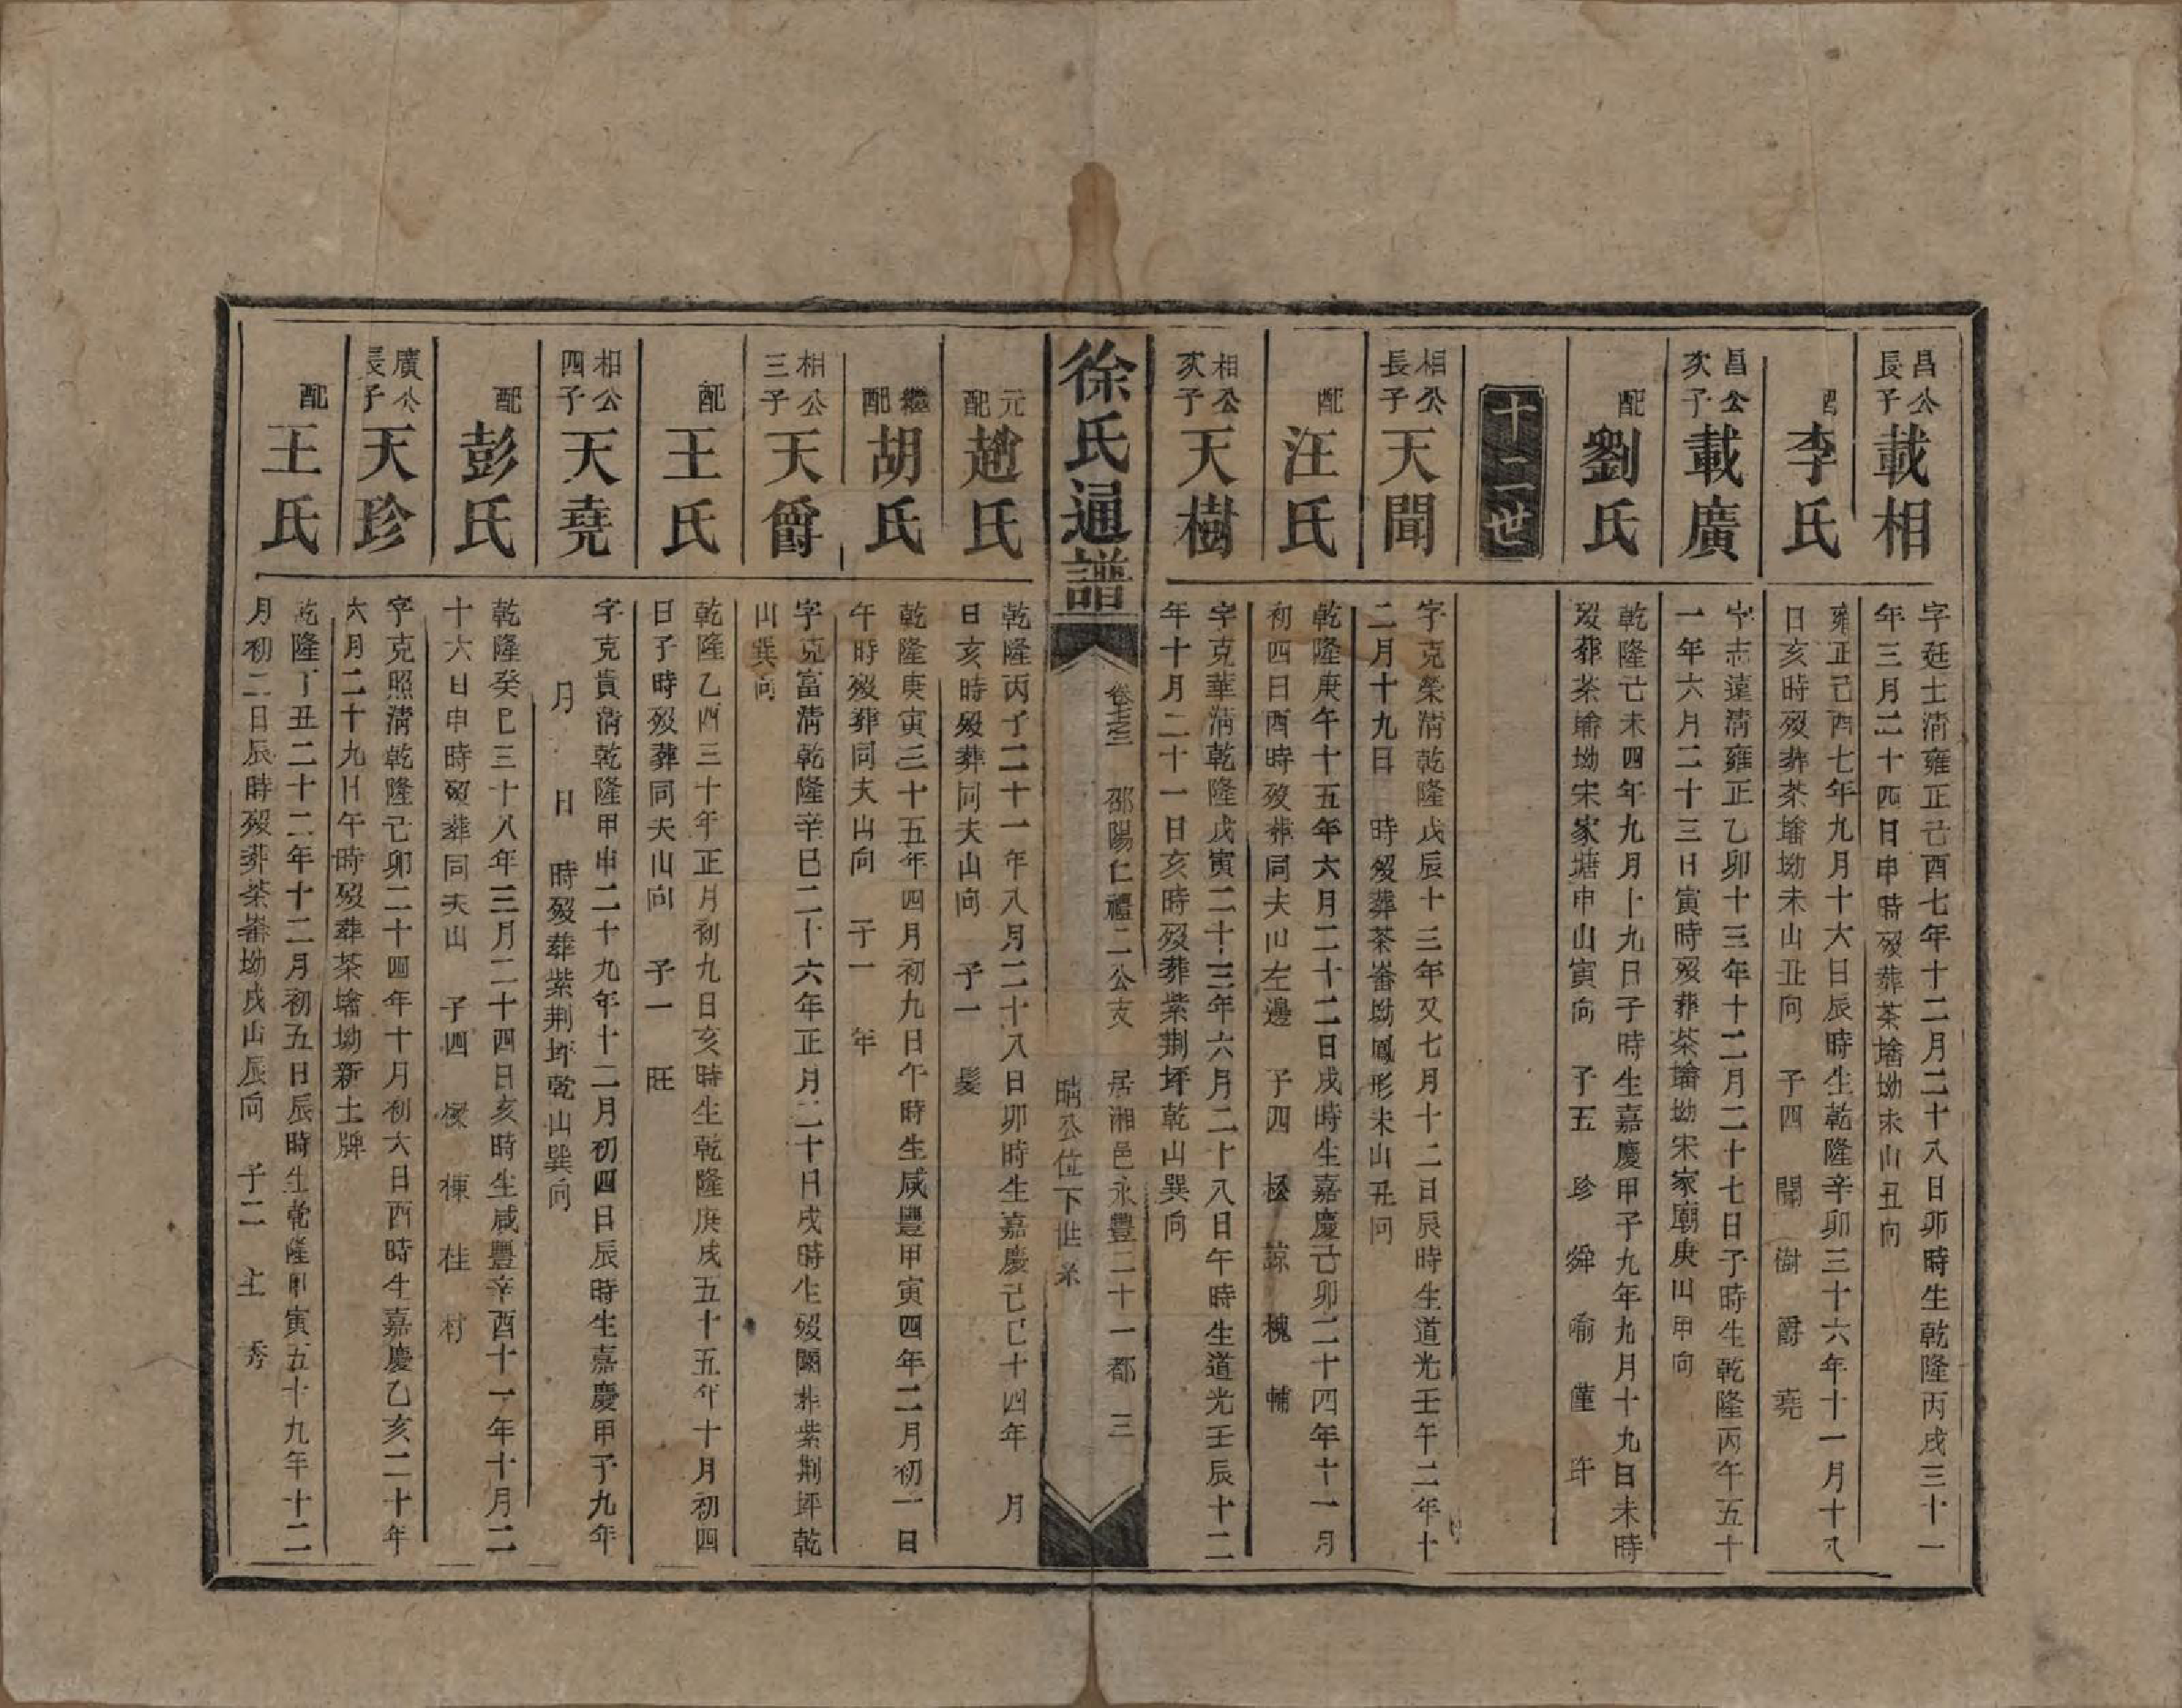 昌公
長子
載相
字廷士清雍正己酉七年十二月二十八日卯時生乾隆丙戌三十一
年三月二十四日申時歿葬茶墦坳未山丑向
配
李氏
雍正己酉七年九月十六日辰時生乾隆辛卯三十六年十一月十八
日亥時歿葬茶墦坳未山丑向 子四 聞 樹 爵 堯
昌公
次子
載廣
字志遠清雍正乙卯十三年十二月二十七日子時生乾隆丙午五十
一年六月二十三日寅時歿葬茶墦坳宋家廟庚山甲向
配
劉氏
乾隆己未四年九月十九日子時生嘉慶甲子九年九月十九日未時
歿葬茶墦坳宋家塘申山寅向 子五 珍 舜 喻 僅 許
十二世
相公
長子
天聞
字克榮清乾隆戊辰十三年又七月十二日辰時生道光壬午二年十
二月十九日 時歿葬茶崙坳鳳形未山丑向
配
汪氏
乾隆庚午十五年六月二十二日戌時生嘉慶己卯二十四年十一月
初四日酉時歿葬同夫山左邊 子四 極 諒 槐 輔
相公
次子
天樹
字克華清乾隆戊寅二十三年六月二十八日午時生道光壬辰十二
年十月二十一日亥時歿葬紫荆坪乾山巽向
徐氏通譜
卷 邵陽仁禮二公支 居湘邑永豐二十一都 三
晴公位下世系
元
配
趙氏
乾隆丙子二十一年八月二十八日卯時生嘉慶己巳十四年 月
日亥時歿葬同夫山向 子一 髮
繼
配
胡氏
乾隆庚寅三十五年四月初九日午時生咸豐甲寅四年二月初一日
午時歿葬同夫山向 子一 年
相公
三子
天爵
字克富清乾隆辛巳二十六年正月二十日戌時生歿闕葬紫荆坪乾
山巽向
配
王氏
乾隆乙酉三十年正月初九日亥時生乾隆庚戌五十五年十月初四
日子時歿葬同夫山向 子一 旺
相公
四子
天堯
字克貴清乾隆甲申二十九年十二月初四日辰時生嘉慶甲子九年
月 日 時歿葬紫荆坪乾山巽向
配
彭氏
乾隆癸巳三十八年三月二十四日亥時生咸豐辛酉十一年十月二
十六日申時歿葬同夫山 子四 樑 棟 桂 村
廣公
長子
天珍
字克照清乾隆己卯二十四年十月初六日酉時生嘉慶乙亥二十年
六月二十九日午時歿葬茶墦坳新土牌
配
王氏
乾隆丁丑二十二年十二月初五日辰時生乾隆甲寅五十九年十二
月初二日辰時歿葬茶崙坳戌山辰向 子二 主 秀